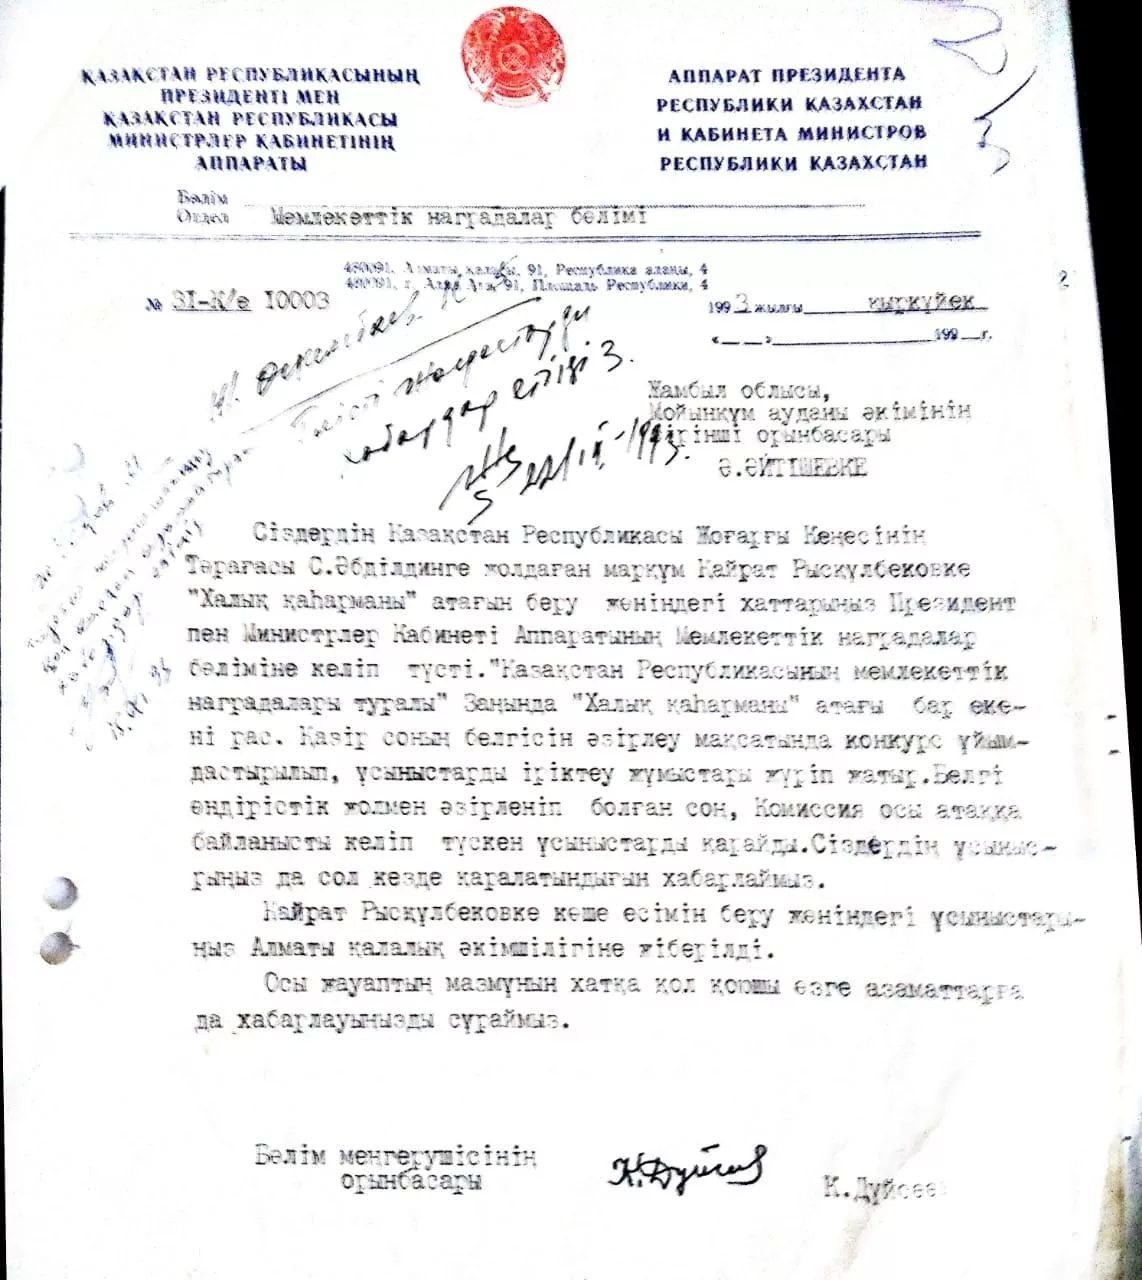 ҚАЗАҚСТАН РЕСПУБЛИКАСЫНЫҢ
ПРЕЗИДЕНТІ МЕН
ҚАЗАҚСТАН РЕСПУБЛИКАСЫ
МИНИСТРЛЕР КАБИНЕТІНІҢ
АППАРАТЫ
АППАРАТ ПРЕЗИДЕНТА
РЕСПУБЛИКИ КАЗАХСТАН
И КАБИНЕТА МИНИСТРОВ
РЕСПУБЛИКИ КАЗАХСТАН
Бөлім
Отдел Мемлекеттік наградалар бөлімі
480091, Алматы қаласы, 91, Республика алаңы, 4
480091, г. Алма-Ата, 91, Площадь Республики, 4
№ 31-К/е 10003
1993 жылғы қыркүйек
«__» 199 г.
Жамбыл облысы,
Мойынқұм ауданы әкімінің
бірінші орынбасары
Ә.ӘЙТІШЕВКЕ
хабардар етіңіз.
Сіздердің Қазақстан Республикасы Жоғарғы Кеңесінің
Төрағасы С.Әбділдинге жолдаған марқұм Қайрат Рысқұлбековке
"Халық қаһарманы" атағын беру жөніндегі хаттарыңыз Президент
пен Министрлер Кабинеті Аппаратының Мемлекеттік наградалар
бөліміне келіп түсті."Қазақстан Республикасының мемлекеттік
наградалары туралы" Заңында "Халық қаһарманы" атағы бар еке-
ні рас. Қазір соның белгісін әзірлеу мақсатында конкурс ұйым-
дастырылып, ұсыныстарды іріктеу жұмыстары жүріп жатыр.Белгі
өндірістік жолмен әзірленіп болған соң, Комиссия осы атаққа
байланысты келіп түскен ұсыныстарды қарайды.Сіздердің ұсыныс-
рыңыз да сол кезде қаралатындығын хабарлаймыз.
Қайрат Рысқұлбековке көше есімін беру жөніндегі ұсыныстары-
ңыз Алматы қалалық әкімшілігіне жіберілді.
Осы жауаптың мазмұнын хатқа қол қоюшы өзге азаматтарға
да хабарлауыңызды сұраймыз.
Бөлім меңгерушісінің
орынбасары
К.Дүйсеев